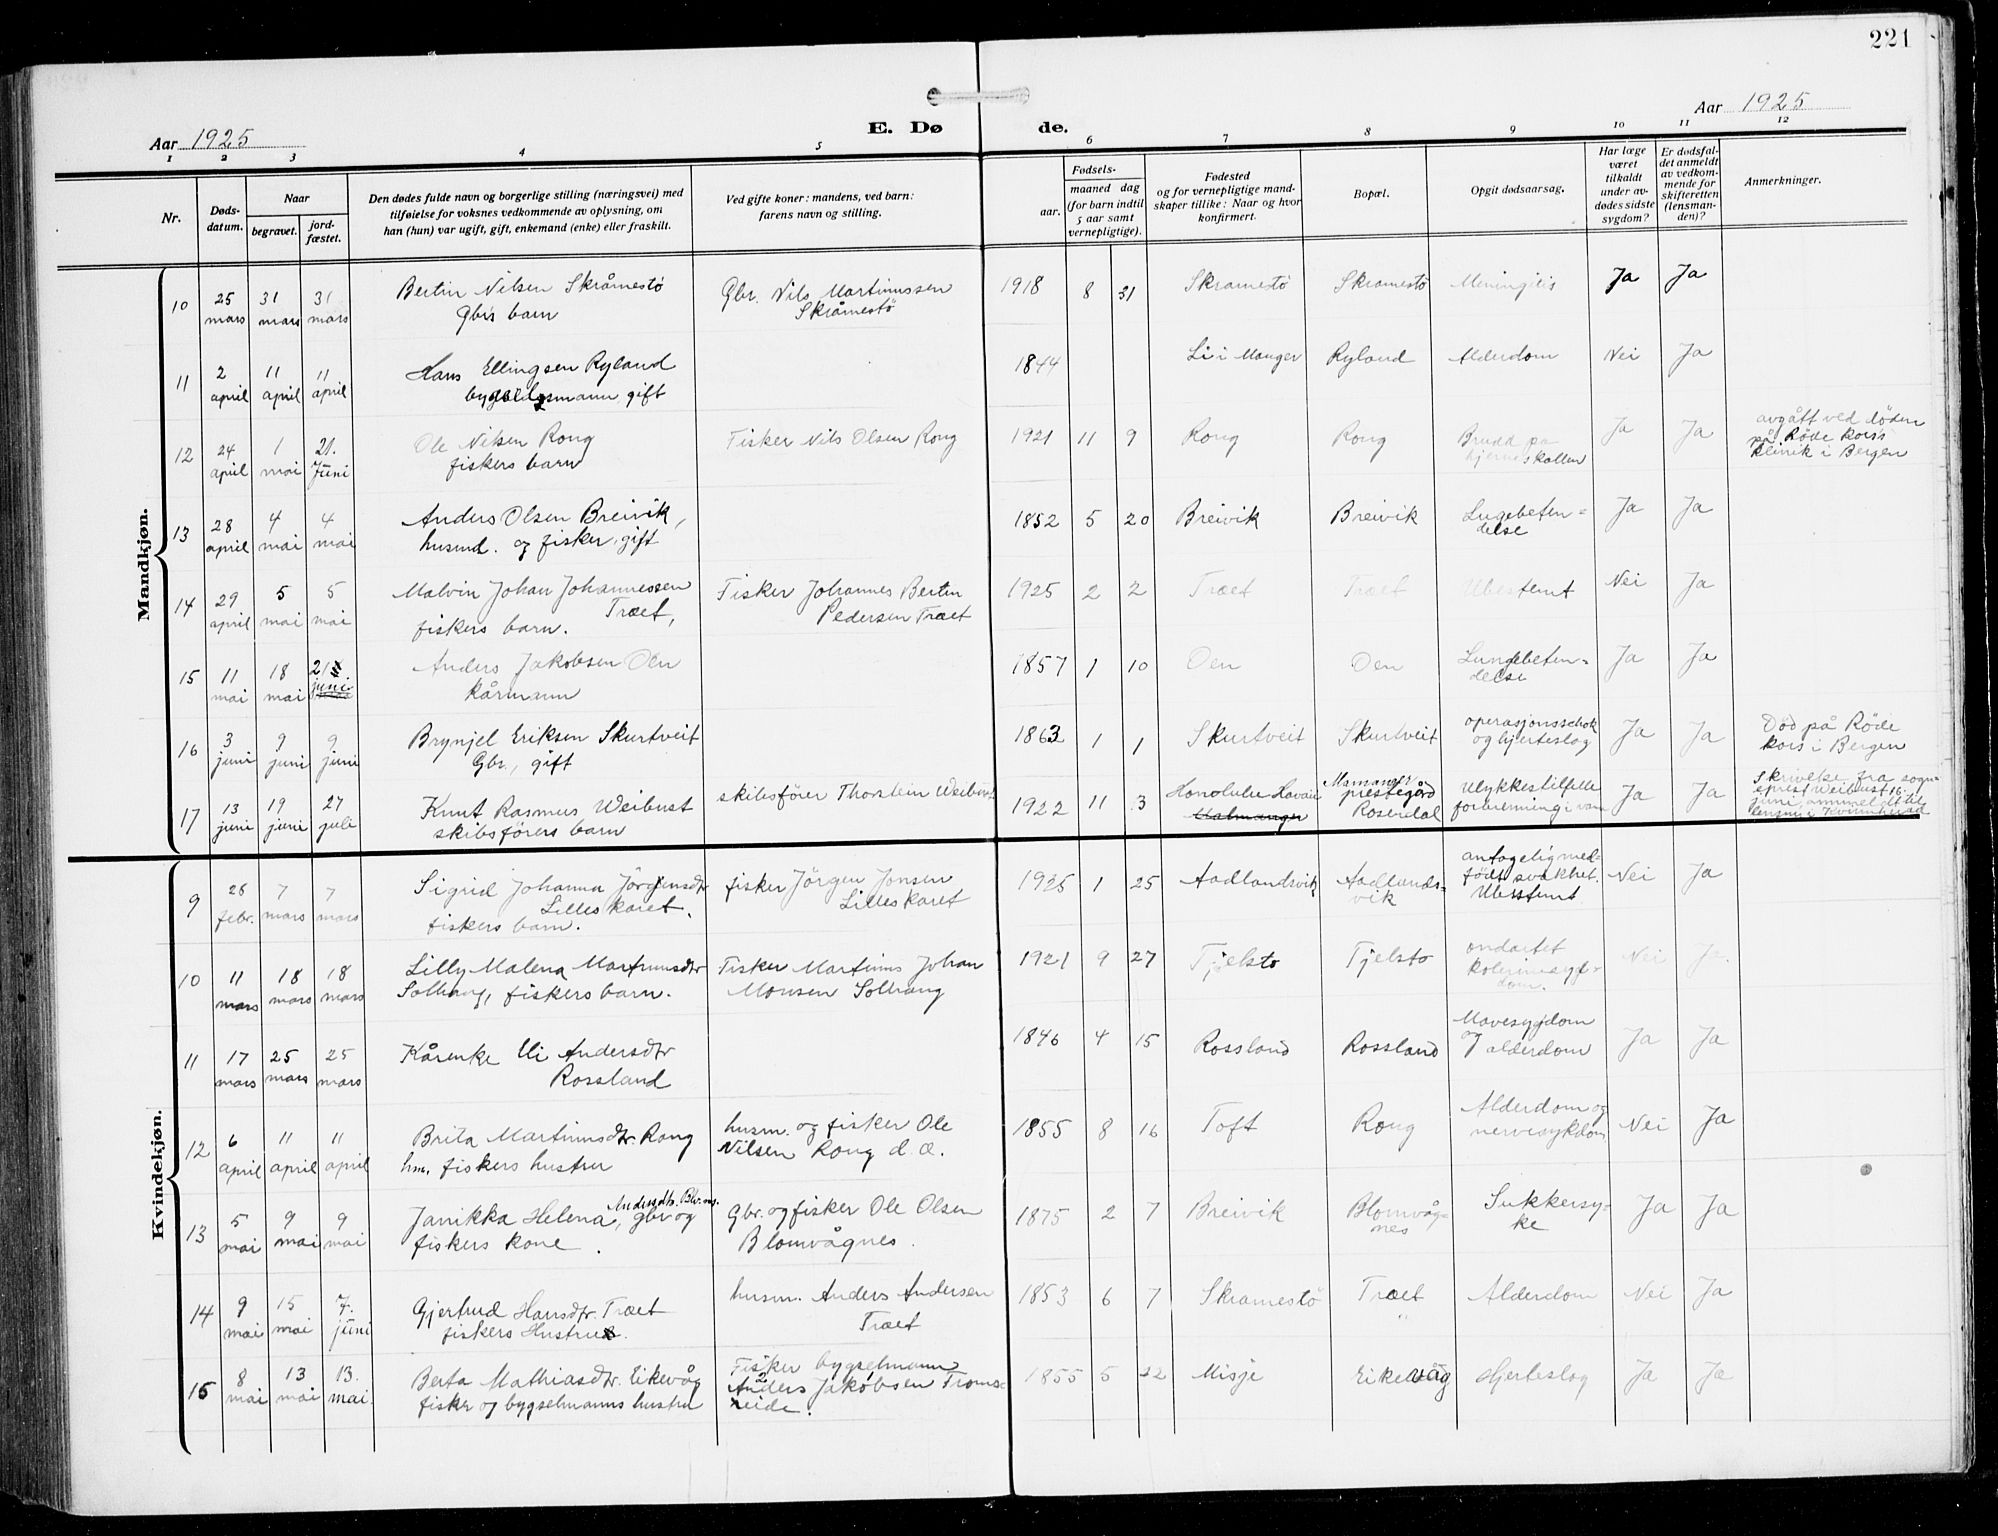 221
Aar 1925
E. Dø
de.
Aar 1925
1 2 3 4 5 6 7 8 9 10 11 12
Nr.
Døds-
datum.
Naar
begravet.
jord-
fæstet.
Den dødes fulde navn og borgerlige stilling (næringsvei) med
tilføielse for voksnes vedkommende av oplysning, om
han (hun) var ugift, gift, enkemand (enke) eller fraskilt.
Ved gifte koner: mandens, ved barn:
farens navn og stilling.
Fødsels-
aar.
maaned dag
(for barn indtil
5 aar samt
vernepligtige).
Fødested
og for vernepligtige mand-
skaper tillike: Naar og hvor
konfirmert.
Bopæl.
Opgit dødsaarsag.
Har læge
været
tilkaldt
under av-
dødes sidste
sygdom?
Er dødsfal-
det anmeldt
av vedkom-
mende for
skifteretten
(lensman-
den)?
Anmerkninger.
Mandkjøn.
10 25 mars 31 mars 31 mars Bertin Nilsen Skråmestö Gbr. Nils Martinussen 1918 8 31 Skramestö Skramestö Meningitis Ja Ja
Gbrs barn Skråmestö
11 2 april 11 april 11 april Hans Ellingsen Ryland 1844 Li i Manger Ryland Alderdom Nei Ja
bygselsmann, gift
12 24 april 1 mai 21. Juni Ole Nilsen Rong Fisker Nils Olsen Rong 1921 11 9 Rong Rong Brudd på Ja Ja avgått ved døden
fiskers barn hjerneskallen på Røde kors's
klinik i Bergen
13 28 april 4 mai 4 mai Anders Olsen Breivik, 1852 5 20 Breivik Breivik Lugebeten= Ja Ja
husmd. og fisker, gift delse
14 29 april 5 mai 5 mai Malvin Johan Johannessen Fisker Johannes Bertin 1925 2 2 Træet Træet Ubestemt Nei Ja
Træet, Pedersen Træet
fiskers barn.
15 11 mai 18 mai 21 juni Anders Jakobsen Oen 1857 1 10 Oen Oen Lungebeten= Ja Ja
kårmann delse
16 3 juni 9 juni 9 juni Brynjel Eriksen Skurtveit 1863 1 1 Skurtveit Skurtveit operasjonsschok Ja Ja Död på Röde
Gbr., gift og hjerteslag kors i Bergen
17 13 juni 19 juni 27 juli Knut Rasmus Weibust skibsfører Thorstein Weibust 1922 11 3 Honolulu Havaii prestegård ulykkestilfelle Ja Ja Skrivelse fra sogne-
skibsförers barn Malmanger Rosendal forbrenning i vann prest Weibust 16.
juni, anmeldt til
lensm. i Kvinnherad
Kvindekjøn.
9 26 febr. 7 mars 7 mars Sigrid Johanna Jörgensdtr fisker Jörgen Jonsen 1925 1 25 Aadlandsvik Aadlands= antagelig med= Nei Ja
Lilleskaret. Lilleskaret vik född svakhet.
fiskers barn. Ubestemt
10 11 mars 18 mars 18 mars Lilly Malena Martinusdtr Fisker Martinus Johan 1921 9 27 Tjelsto Tjelsto ondartet Nei Ja.
Solhaug, fiskers barn. Monsen Solhaug kolerinesyg=
dom.
11 17 mars 25 mars 25 mars Kårenke Andersdtr 1846 4 15 Rossland Rossland Mavesygdom Ja Ja
Rossland og alderdom
12 6 april 11 april 11 april Brita Martinusdtr. Rong husm. og fisker Ole 1855 8 16 Toft Rong Alderdom og Nei Ja
hm. fiskers hustru Nilsen Rong d.æ. nervesykdom
Andersdtr. Blv.nes.
13 5 mai 9 mai 9 mai Janikka Helena, gbr og Gbr. og fisker Ole Olsen 1875 2 7 Breivik Blomvåg= Sukkersy= Ja Ja
fiskers kone. Blomvågnes. nes ke
14 9 mai 15 mai 7. juni Gjertrud Hansdtr. Træet husm. Anders Andersen 1853 6 7 Skramestö Træet Alderdom Nei Ja
fiskers Hustru. Træet
15 8 mai 13 mai 13. mai. Berta Mathiasdtr. Eikevåg Fisker bygselmann 1855 5 22 Misje Eikevåg Hjerteslag Ja Ja
fisker og bygselmanns hustru Anders Jakobsen Troms=
neide.